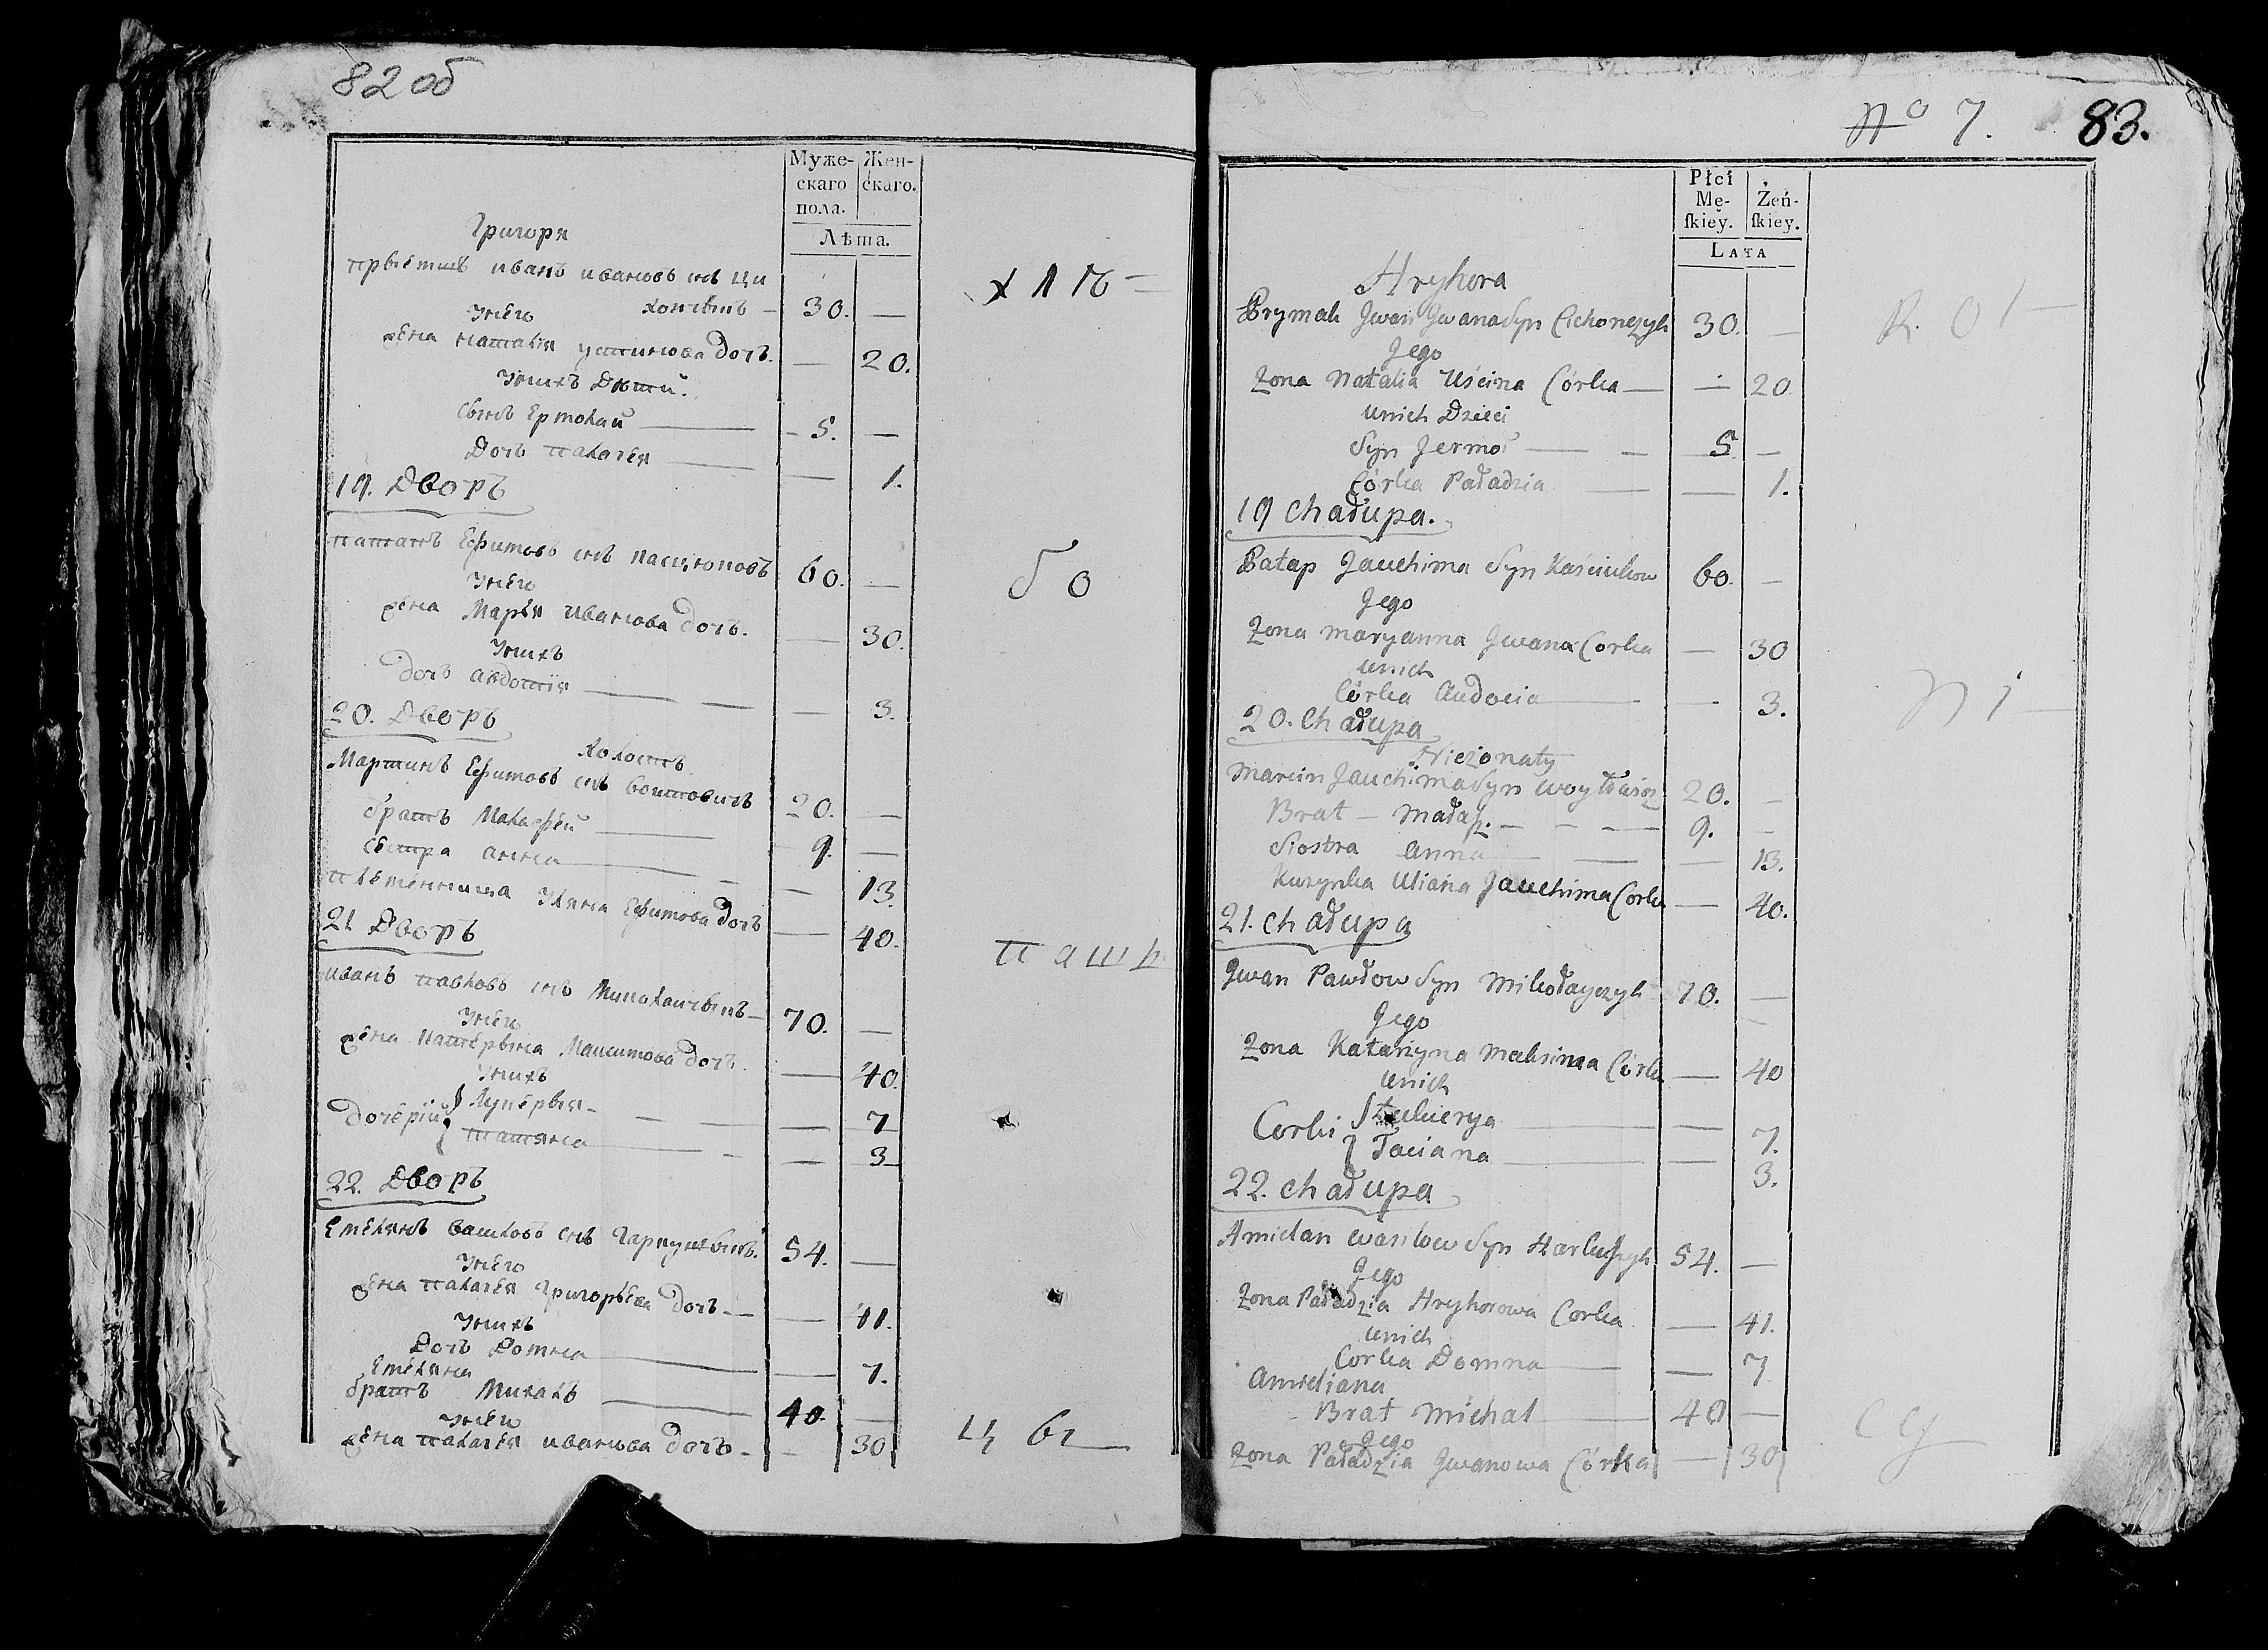 82 об
Муже-
скаго
пола.
Жен-
скаго.
Лѣта.
Григоря
прыемшъ иванъ ивановъ снъ ци
хончикъ — 30. —
У него
жена наталiя устинова дочь. — 20.
У нихъ Дѣти.
сынъ Ермолай — 5. —
Дочь палагея — 1.
19. Дворъ
патапъ Ефимовъ снъ 60. —
У него
жена Марья иванова дочь. — 30.
У нихъ
дочь авдотiя — 3.
20. Дворъ
холостъ
Мартинъ Ефимовъ снъ 20. —
братъ Малафей — 9. —
сестра анна — 13.
племенница Уляна Ефимова дочь — 40.
21 Дворъ
иванъ павловъ снъ Миколайчыкъ — 70. —
У него
жена катерына Максимова дочь. — 40.
У нихъ
дочерiи Лукерья — 7
татяна — 3
22. Дворъ
Емелянъ василовъ снъ 54. —
У него
жена палагея Григорьева дочь — 41.
У нихъ
Дочь Домна — 7.
Емеляна
братъ Михалъ — 40. —
У него
жена палагея иванова дочь — 30
х л п ъ —
б о
п а ш п
ц ы
No 7. 83.
Płci
Mę-
ſkiey.
Żeń-
ſkiey.
LATA
Hryhora
Prymak Jwan Jwana Syn Cichonczyk 30. —
Jego
Zona Natalia Uścina Córka — 20.
unich Dzieci
Syn Jermoł — 5 —
Córka Paładzia — 1.
19 Chałupa.
Patap Jauchima Syn Kaściukow 60. —
Jego
Zona Maryanna Jwana Corka — 30
unich
Córka Audocia — 3.
20. Chałupa
Niezonaty
Marcin Jauchima Syn 20. —
Brat — Małaf. — 9. —
Siostra Anna — 13.
Kuzynka Uliana Jauchima Corka — 40.
21. Chałupa
Jwan Pawłow Syn Mikołayczyk 70. —
Jego
Zona Katarzyna Maksima Córka — 40
unich
Corki Łukierya — 7.
Taciana — 3.
22. Chałupa
Amielan Wasilow Syn 54. —
Jego
Zona Paładzia Hryhorowa Corka — 41.
unich
Corka Domna — 7
Amieliana
Brat Michal — 40 —
Jego
Zona Paładzia Jwanowa Córka — 30